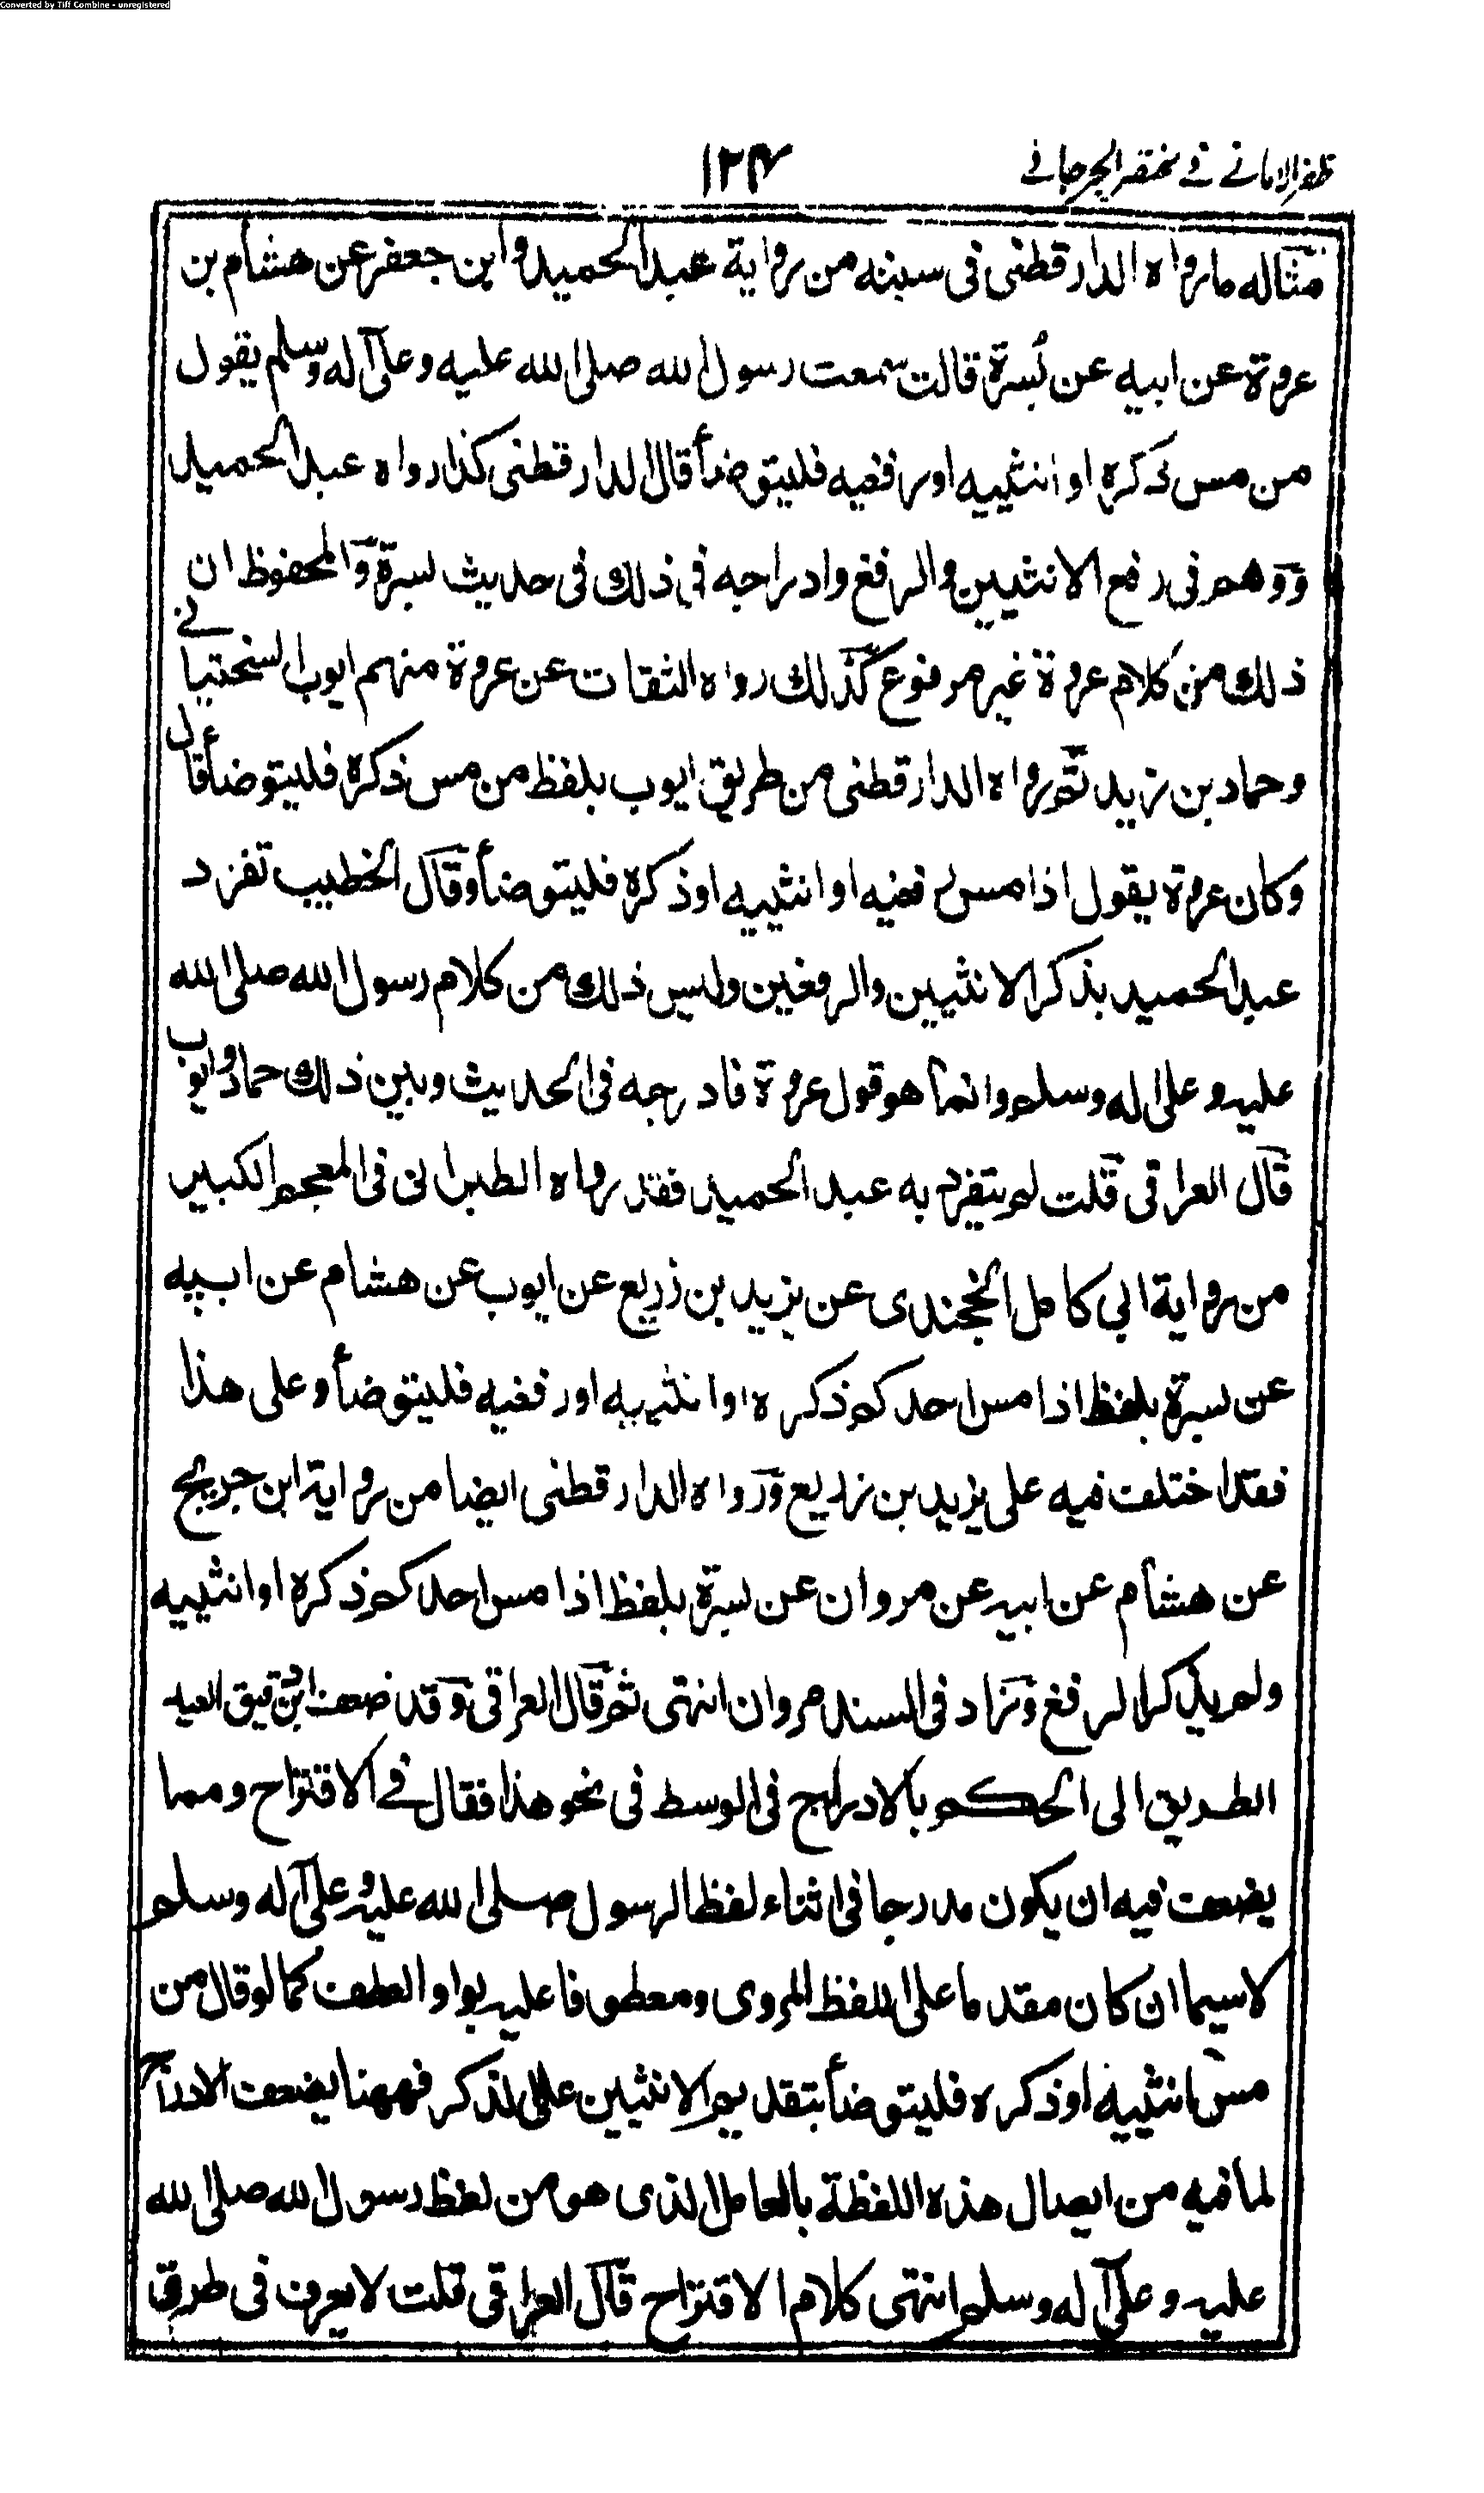 Converted by Tiff Combine - unregistered
ظفر الامانے فے مختصر الجرجانے
١٢٣
مثاله ما رواه الدارقطنى فى سننه من رواية عبد الحميد وابن جعفر عن هشام بن
عروة عن ابيه عن بُسرة قالت سمعت رسول الله صلى الله عليه وعلى آله وسلم يقول
من مس ذكره او انثييه او رفغيه فليتوضأ قال الدارقطنى كذا رواه عبد الحميد
ووهم فى رفع الانثيين والرفغ وادراجه فى ذلك فى حديث بسرة والمحفوظ ان
ذلك من كلام عروة غير مرفوع كذلك رواه الثقات عن عروة منهم ايوب السختيانے
وحماد بن زيد ثم رواه الدارقطنى من طريق ايوب بلفظ من مس ذكره فليتوضأ قال
وكان عروة يقول اذا مس رفغيه او انثييه او ذكره فليتوضأ وقال الخطيب تفرد
عبد الحميد بذكر الانثيين والرفغين وليس ذلك من كلام رسول الله صلى الله
عليه وعلى اله وسلم وانما هو قول عروة فادرجه فى الحديث وبين ذلك حماد وايوب
قال العراقى قلت لم يتفرد به عبد الحميد فقد رواه الطبرانى فى المعجم الكبير
من رواية ابى كامل الخجندى عن يزيد بن زريع عن ايوب عن هشام عن ابيه
عن بسرة بلفظ اذا مس احدكم ذكره او انثييه او رفغيه فليتوضأ وعلى هذا
فقد اختلف فيه على يزيد بن زريع ورواه الدارقطنى ايضا من رواية ابن جريج
عن هشام عن ابيه عن مروان عن بسرة بلفظ اذا مس احدكم ذكره او انثييه
ولم يذكر الرفغ وزاد فى السند مروان انتهى ثم قال العراقى وقد ضعف ابن دقيق العيد
الطريق الى الحكم بالادراج فى الوسط فى نحو هذا فقال فے الاقتراح ومما
يضعف فيه ان يكون مدرجا فى اثناء لفظ الرسول صلى الله عليه وعلى آله وسلم
لاسيما ان كان مقدما على اللفظ المروى ومعطوفا عليه بواو العطف كما لو قال من
مس انثييه او ذكره فليتوضأ بتقديم الانثيين على الذكر فههنا يضعف الادراج
لما فيه من ايصال هذه اللفظة بالعامل الذى هو من لفظ رسول الله صلى الله
عليه وعلى آله وسلم انتهى كلام الاقتراح قال العراقى قلت لا يعرف فى طرق